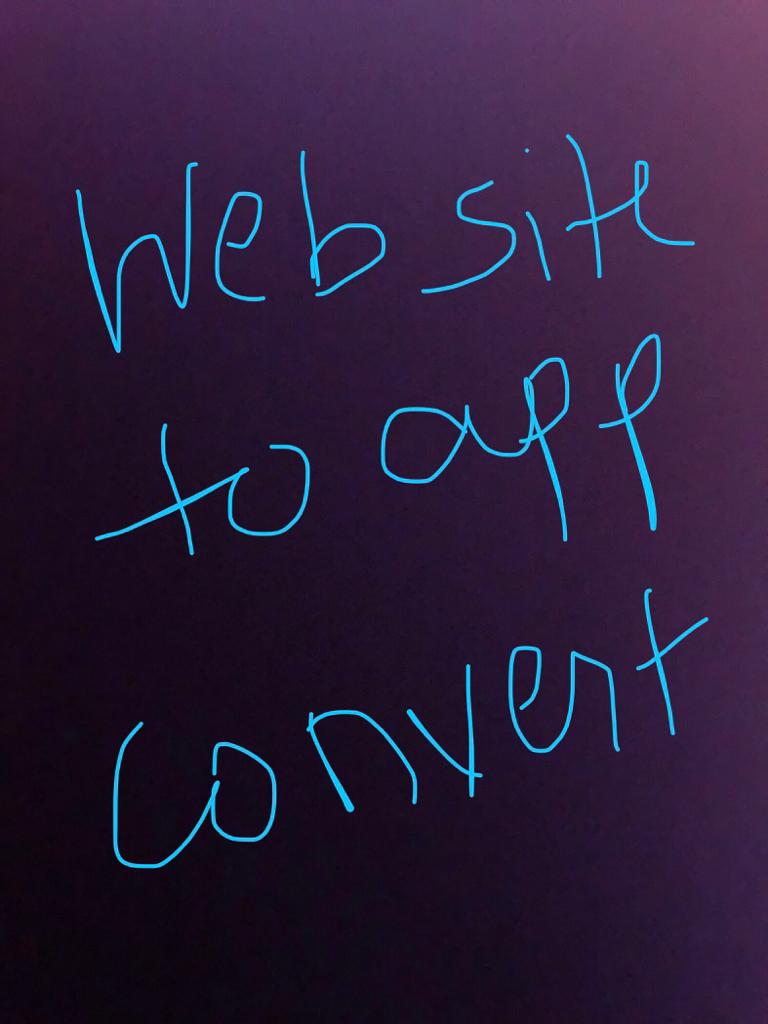 Web site
to app
convert